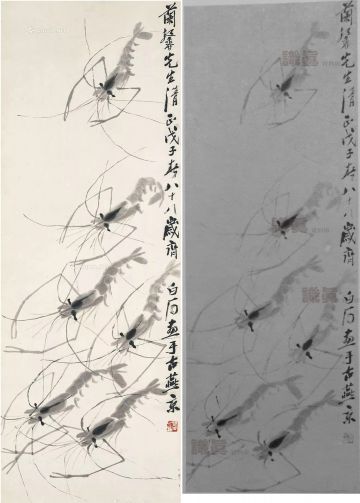 蘭馨先生清正戊子春八十八歲齊白石畫于古燕京
蘭馨先生清正戊子春八十八歲齊白石畫于古燕京